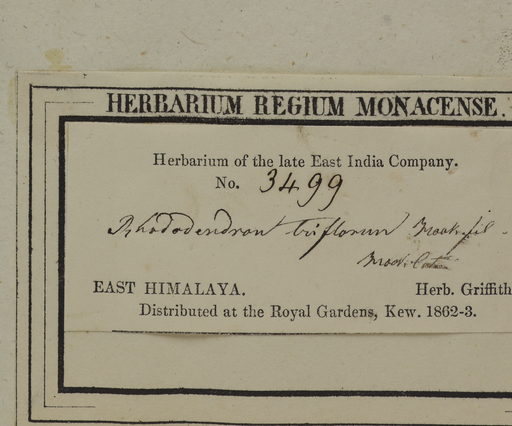 HERBARIUM REGIUM MONACENSE.
Herbarium of the late East India Company.
No. 3499
Rhododendron triflorum Hook. fil.
EAST HIMALAYA. Herb. Griffith
Distributed at the Royal Gardens, Kew. 1862-3.